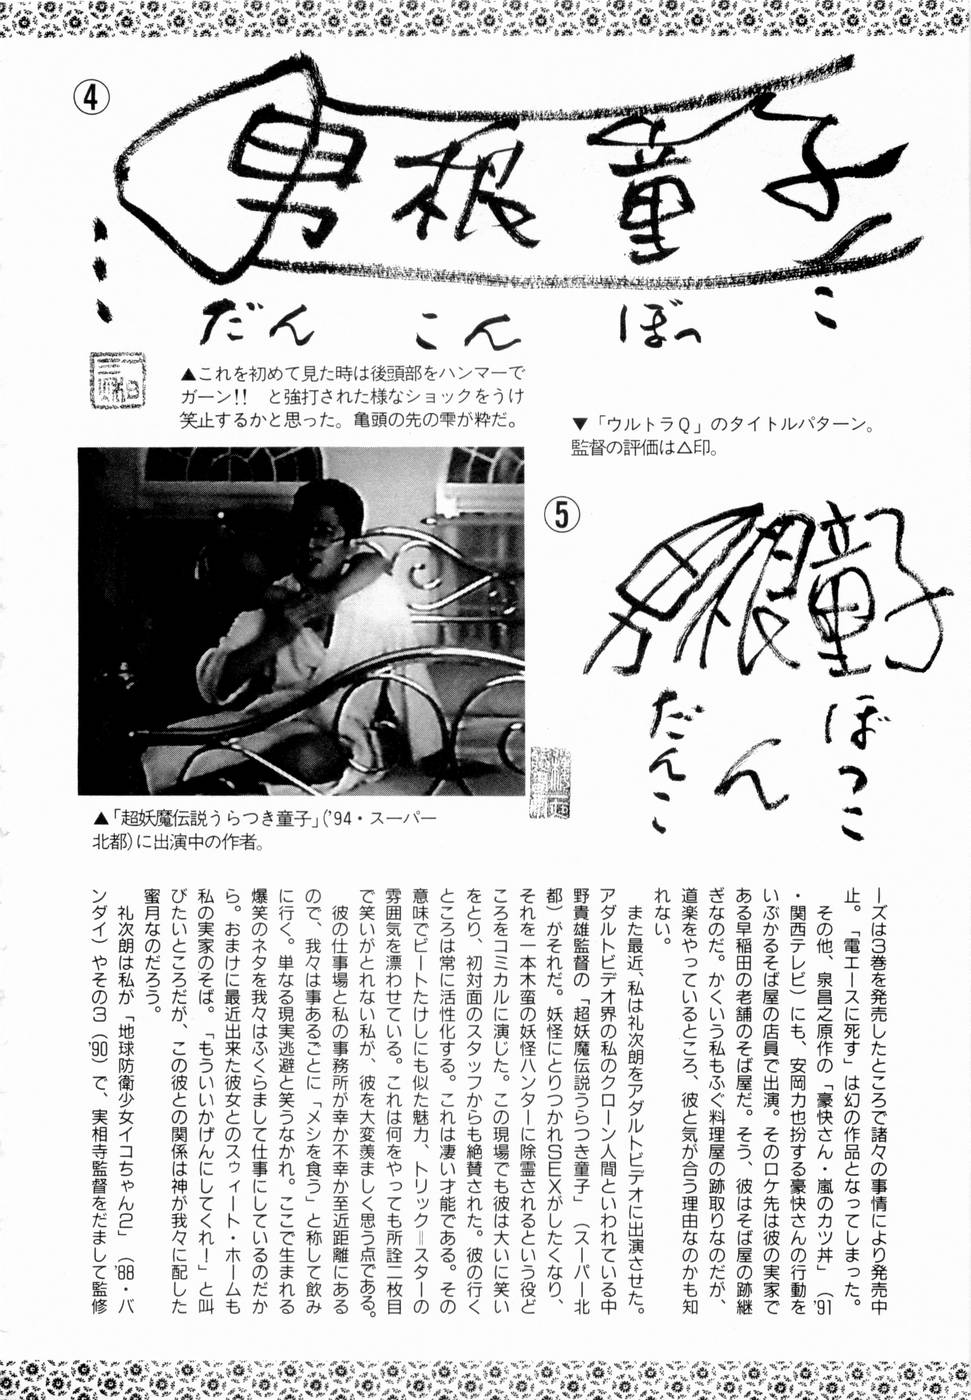 ④
男根童子
だんこんぼっこ
▲これを初めて見た時は後頭部をハンマーで
ガーン!!　と強打された様なショックをうけ
笑止するかと思った。亀頭の先の雫が粋だ。
▼「ウルトラQ」のタイトルパターン。
監督の評価は△印。
⑤
男根童子
だんこ
ん
ぼっこ
▲「超妖魔伝説うらつき童子」('94・スーパー
北都)に出演中の作者。
ーズは3巻を発売したところで諸々の事情により発売中
止。「電エースに死す」は幻の作品となってしまった。
その他、泉昌之原作の「豪快さん・嵐のカツ丼」('91
・関西テレビ)にも、安岡力也扮する豪快さんの行動を
いぶかるそば屋の店員で出演。そのロケ先は彼の実家で
ある早稲田の老舗のそば屋だ。そう、彼はそば屋の跡継
ぎなのだ。かくいう私もふぐ料理屋の跡取りなのだが、
道楽をやっているところ、彼と気が合う理由なのかも知
れない。
また最近、私は礼次朗をアダルトビデオに出演させた。
アダルトビデオ界の私のクローン人間といわれている中
野貴雄監督の「超妖魔伝説うらつき童子」(スーパー北
都)がそれだ。妖怪にとりつかれSEXがしたくなり、
それを一本木蛮の妖怪ハンターに除霊されるという役ど
ころをコミカルに演じた。この現場でも彼は大いに笑い
をとり、初対面のスタッフからも絶賛された。彼の行く
ところは常に活性化する。これは凄い才能である。その
意味でビートたけしにも似た魅力、トリック=スターの
雰囲気を漂わせている。これは何をやっても所詮二枚目
で笑いがとれない私が、彼を大変羨ましく思う点である。
彼の仕事場と私の事務所が幸か不幸か至近距離にある
ので、我々は事あるごとに「メシを食う」と称して飲み
に行く。単なる現実逃避と笑うなかれ。ここで生まれる
爆笑のネタを我々はふくらまして仕事にしているのだか
ら。おまけに最近出来た彼女とのスウィート・ホームも
私の実家のそば。「もういいかげんにしてくれ!」と叫
びたいところだが、この彼との関係は神が我々に配した
蜜月なのだろう。
礼次朗は私が「地球防衛少女イコちゃん2」('88・バ
ンダイ)やその3('90)で、実相寺監督をだまして監修